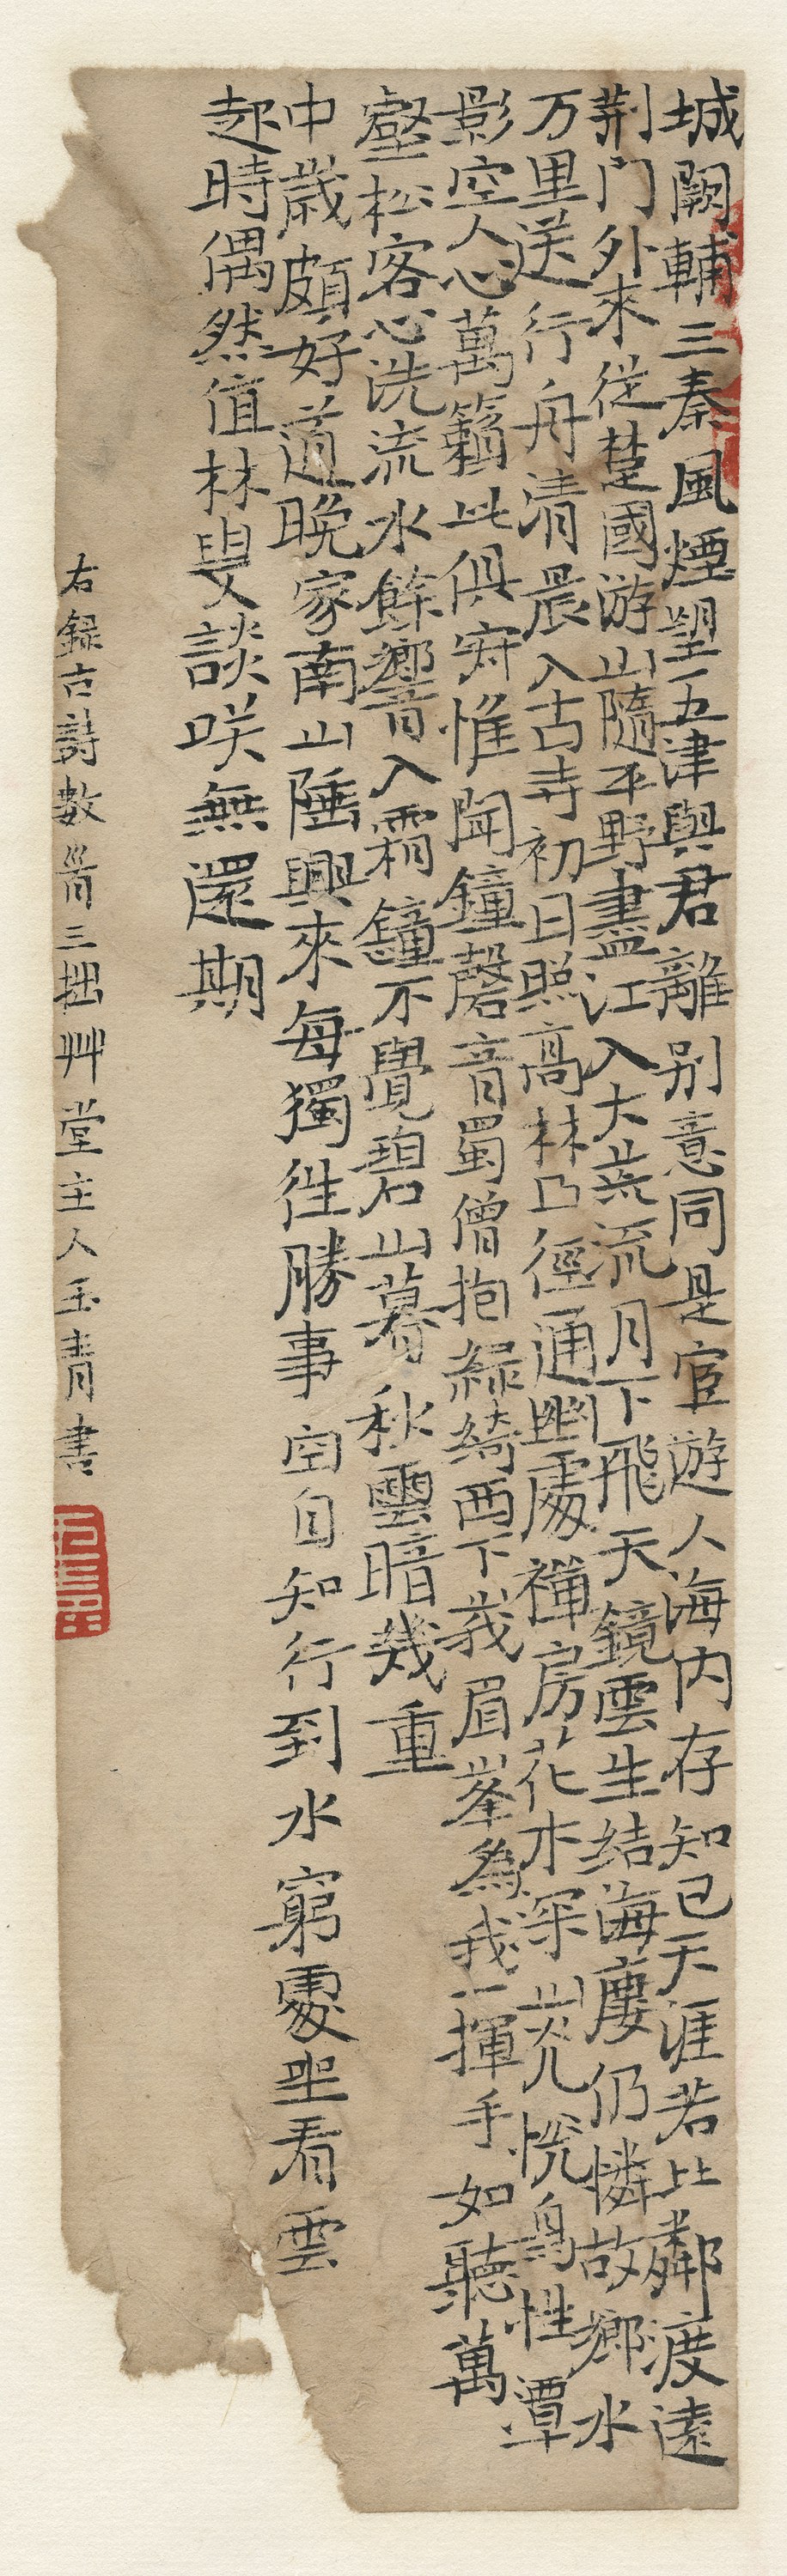 城闕輔三秦風煙望五津與君離别意同是宦遊人海内存知己天涯若比鄰渡遠
荆門外來從楚國游山隨平野盡江入大荒流月下飛天鏡雲生结海廔仍憐故鄉水
万里送行舟清晨入古寺初日照高林曲徑通幽處禪房花木深山光悦鳥性潭
影空人心萬籟此俱寂惟聞鐘磬音蜀僧抱緑綺西下峩眉峯為我一揮手如聽萬
壑松客心洗流水餘響入霜鐘不覺碧山暮秋雲暗幾重
中歲頗好道晚家南山陲興來每獨往勝事空自知行到水窮處坐看雲
起時偶然值林叟談咲無還期
右録古詩數首三拙艸堂主人玉青書